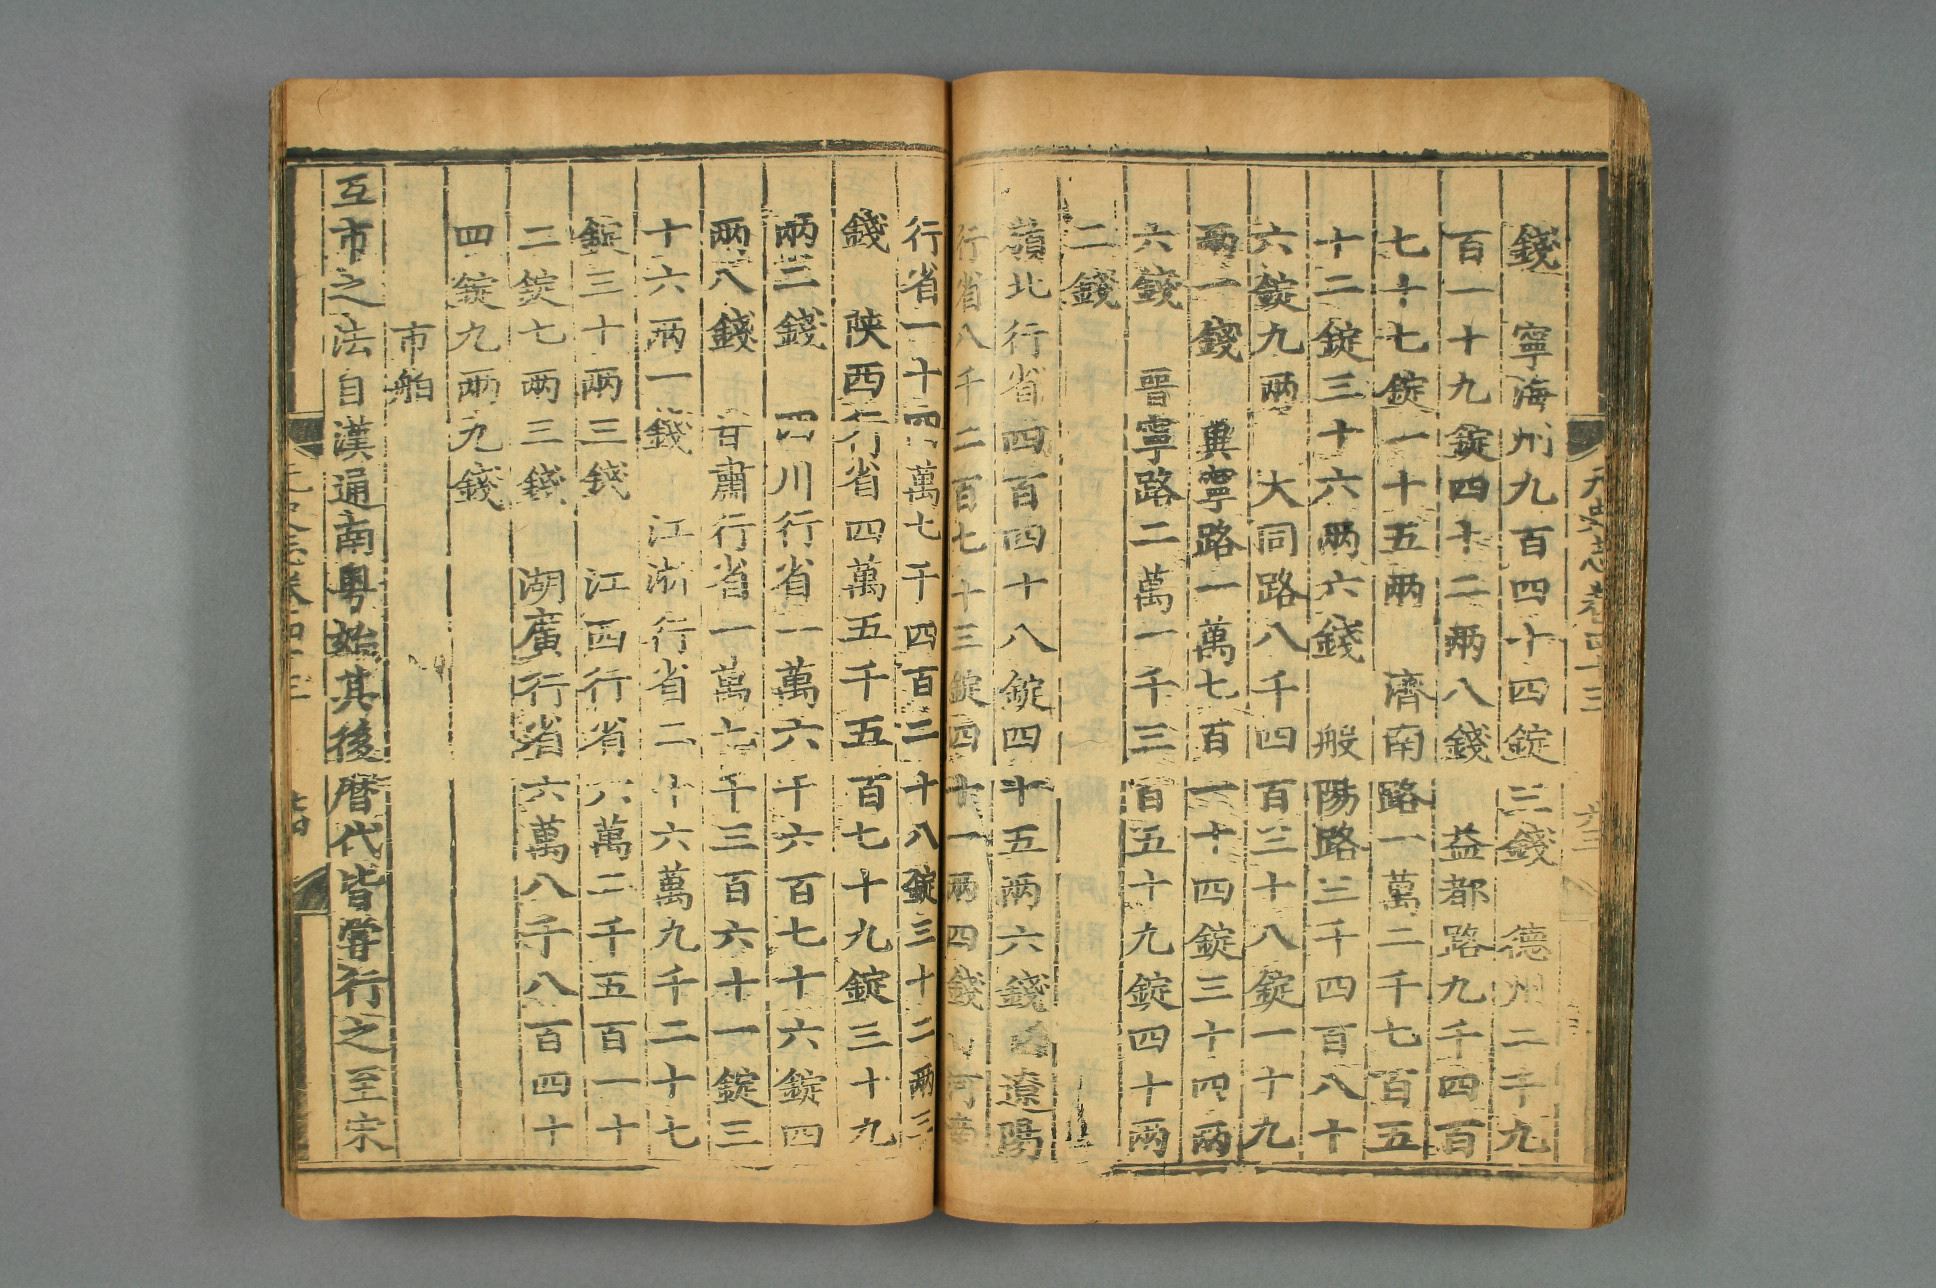 元史志卷四十三
錢 寧海州九百四十四錠三錢 德州二千九
百一十九錠四十二兩八錢 益都路九千四百
七十七錠一十五兩 濟南路一萬二千七百五
十二錠三十六兩六錢 般陽路三千四百八十
六錠九兩 大同路八千四百三十八錠一十九
兩一錢 冀寧路一萬七百一十四錠三十四兩
六錢 晉寧路二萬一千三百五十九錠四十兩
二錢
嶺北行省四百四十八錠四十五兩六錢 遼陽
行省八千二百七十三錠四十一兩四錢 河南
行省一十四萬七千四百二十八錠三十二兩三
錢 陝西行省四萬五千五百七十九錠三十九
兩二錢 四川行省一萬六千六百七十六錠四
兩八錢 甘肅行省一萬七千三百六十一錠三
十六兩一錢 江浙行省二十六萬九千二十七
錠三十兩三錢 江西行省六萬二千五百一十
二錠七兩三錢 湖廣行省六萬八千八百四十
四錠九兩九錢
市舶
互市之法自漢通南粤始其後曆代皆嘗行之至宋
元史志卷四十三